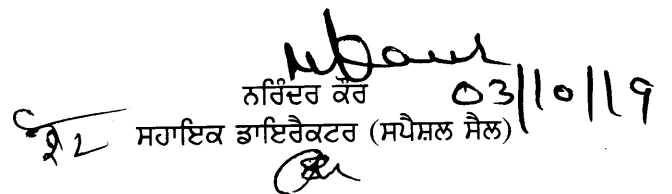 ਨਰਿੰਦਰ ਕੌਰ
03/10/19
ਸਹਾਇਕ ਡਾਇਰੈਕਟਰ (ਸਪੈਸ਼ਲ ਸੈਲ)